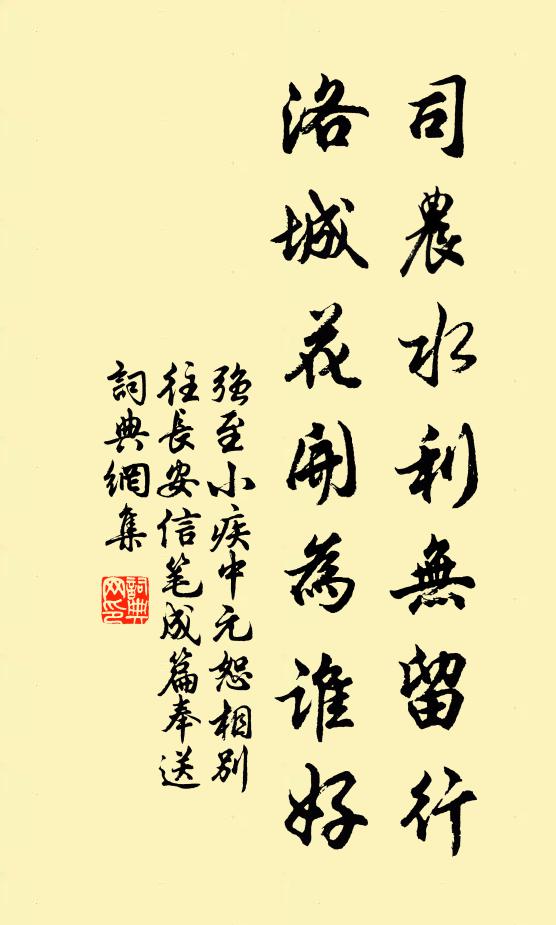 司農水利無留行
洛城花開為誰好
強至小疾中元恕相別
往長安信笔成篇奉送
詞典網集
詞典網印